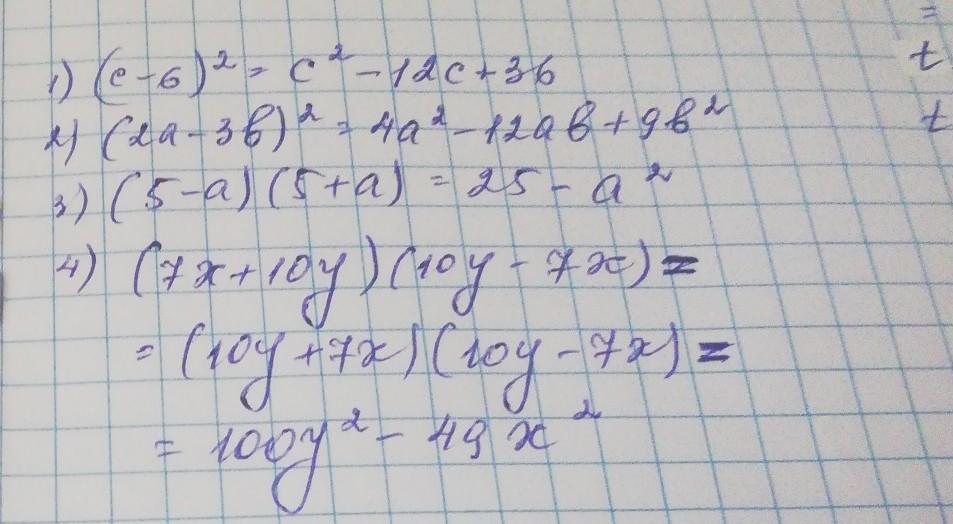 1) (c-6)² = c² - 12c + 36
2) (2a - 3b)² = 4a² - 12ab + 9b²
3) (5-a)(5+a) = 25 - a²
4) (7x+10y)(10y - 7x) =
= (10y+7x)(10y - 7x) =
= 100y² - 49x²
=
t
t